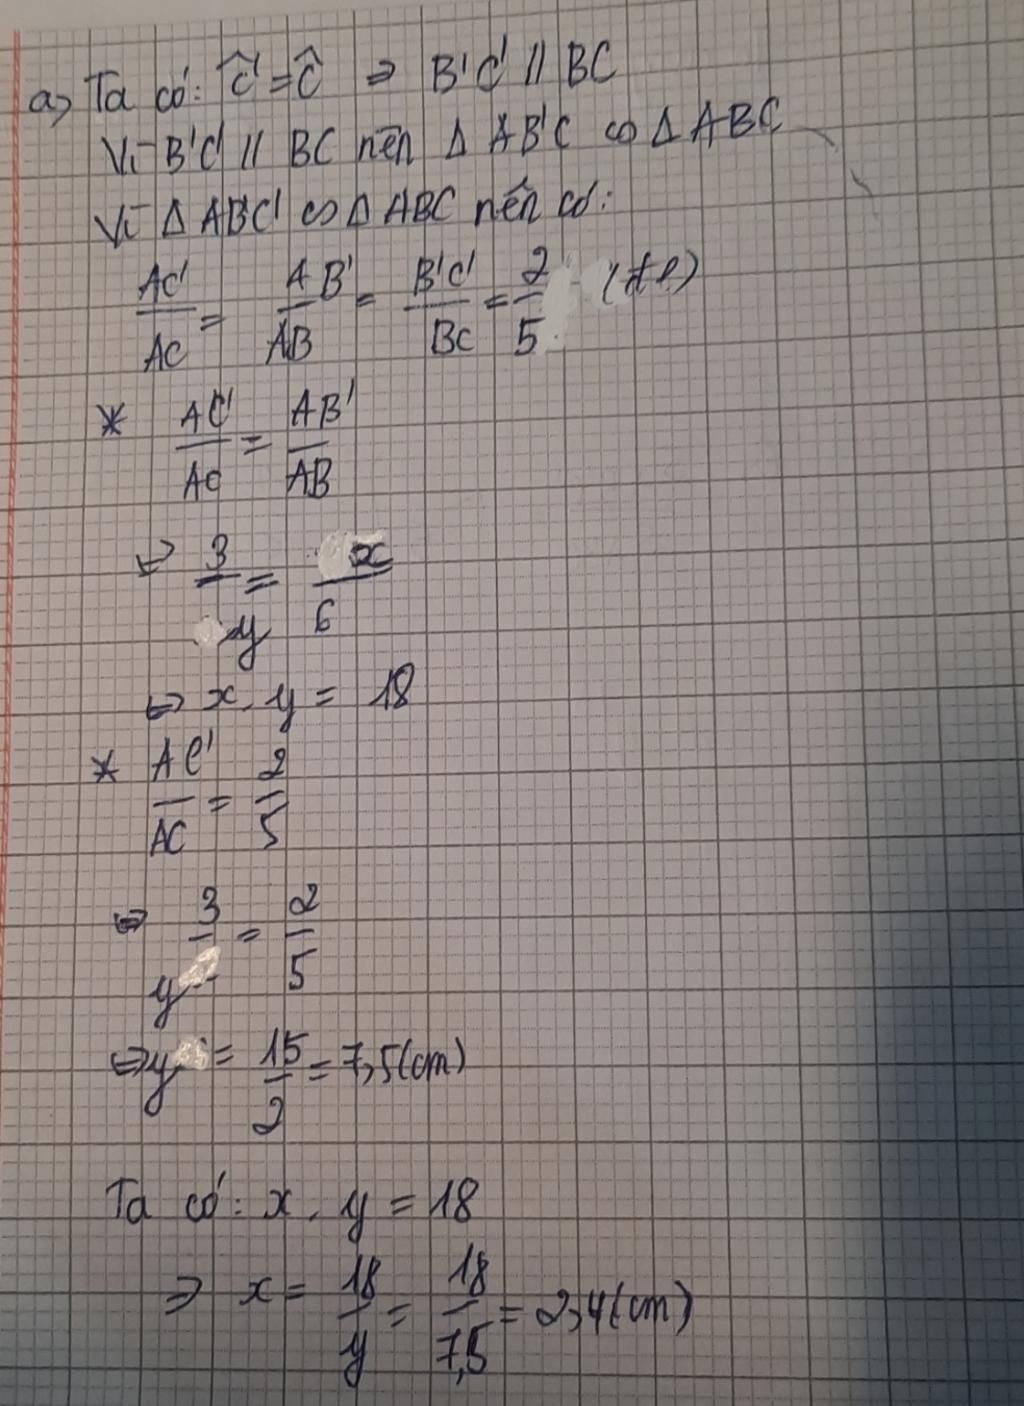 a) Ta có: Ĉ' = Ĉ ⇒ B'C' // BC
Vì B'C' // BC nên Δ AB'C ∽ Δ ABC
Vì Δ AB'C' ∽ Δ ABC nên có:
AC'/AC = AB'/AB = B'C'/BC = 2/5
* AC'/AC = AB'/AB
⇔ 3/y = x/6
⇔ x. y = 18
* AC'/AC = 2/5
⇔ 3/y = 2/5
⇔ y = 15/2 = 7,5 (cm)
Ta có: x. y = 18
⇒ x = 18/y = 18/7,5 = 2,4 (cm)